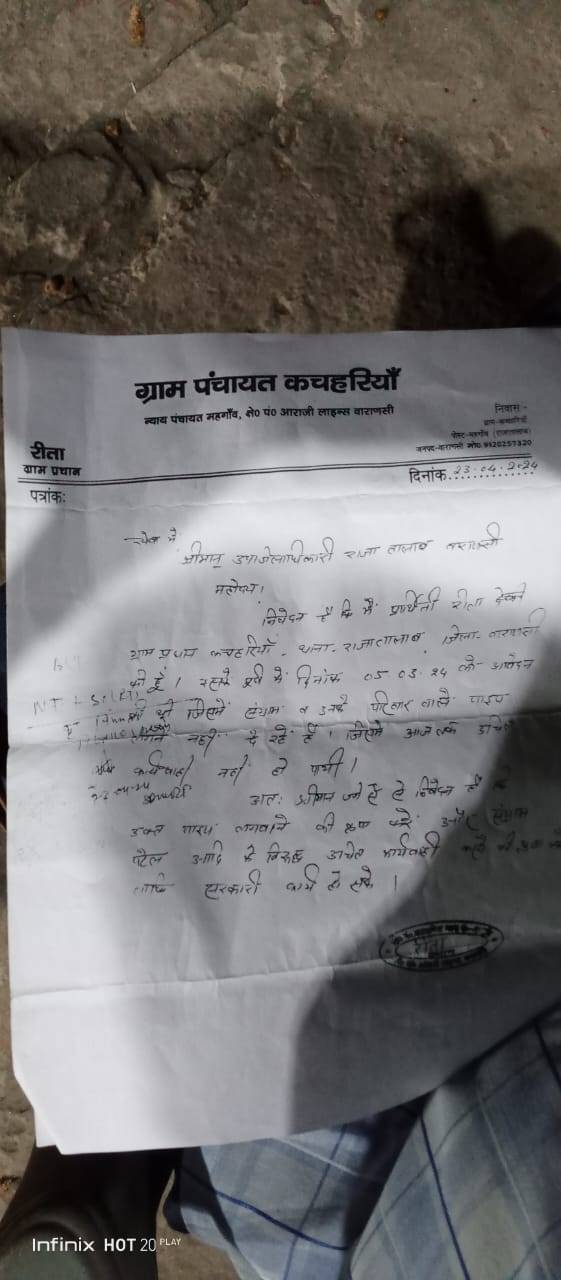 ग्राम पंचायत कचहरियाँ
न्याय पंचायत महगाँव, क्षे० पं० आराजी लाइन्स वाराणसी
निवास -
ग्राम-कचहरियाँ
पोस्ट-महगाँव (राजातालाब)
जनपद-वाराणसी मो० 9120257320
रीता
ग्राम प्रधान
पत्रांक:
दिनांक 23.04.2024
सेवा में
श्रीमान् उपजिलाधिकारी राजा तालाब वाराणसी
महोदय।
निवेदन है कि मैं प्रार्थिनी रीता देवी
ग्राम प्रधान कचहरियाँ थाना-राजातालाब, जिला-वाराणसी
की हूँ। इसके पूर्व में दिनांक 05 03 24 को आवेदन
NT + SO
की जिसमें संग्राम व उनके परिवार वाले पाइप
नहीं दे रहे हैं। जिसमें आज तक उचित
कार्यवाही नहीं हो पायी।
अतः श्रीमान जी से निवेदन है कि
उक्त पाइप लगवाने की कृपा करें और संग्राम
पटेल आदि के विरुद्ध उचित कार्यवाही करने की कृपा करें
ताकि सरकारी कार्य हो सके।
रीता
Infinix HOT 20 PLAY